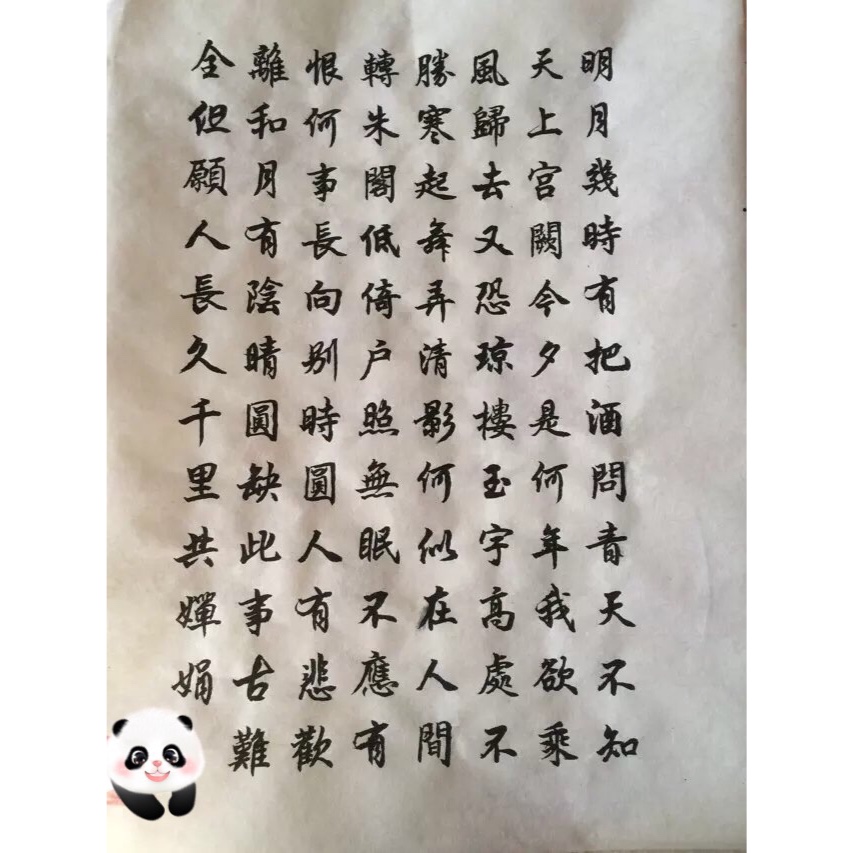 明月幾時有把酒問青天不知
天上宫闕今夕是何年我欲乘
風歸去又恐琼樓玉宇高處不
勝寒起舞弄清影何似在人間
轉朱閣低倚户照無眠不應有
恨何事長向别時圓人有悲歡
離和月有陰晴圓缺此事古難
全但願人長久千里共嬋娟